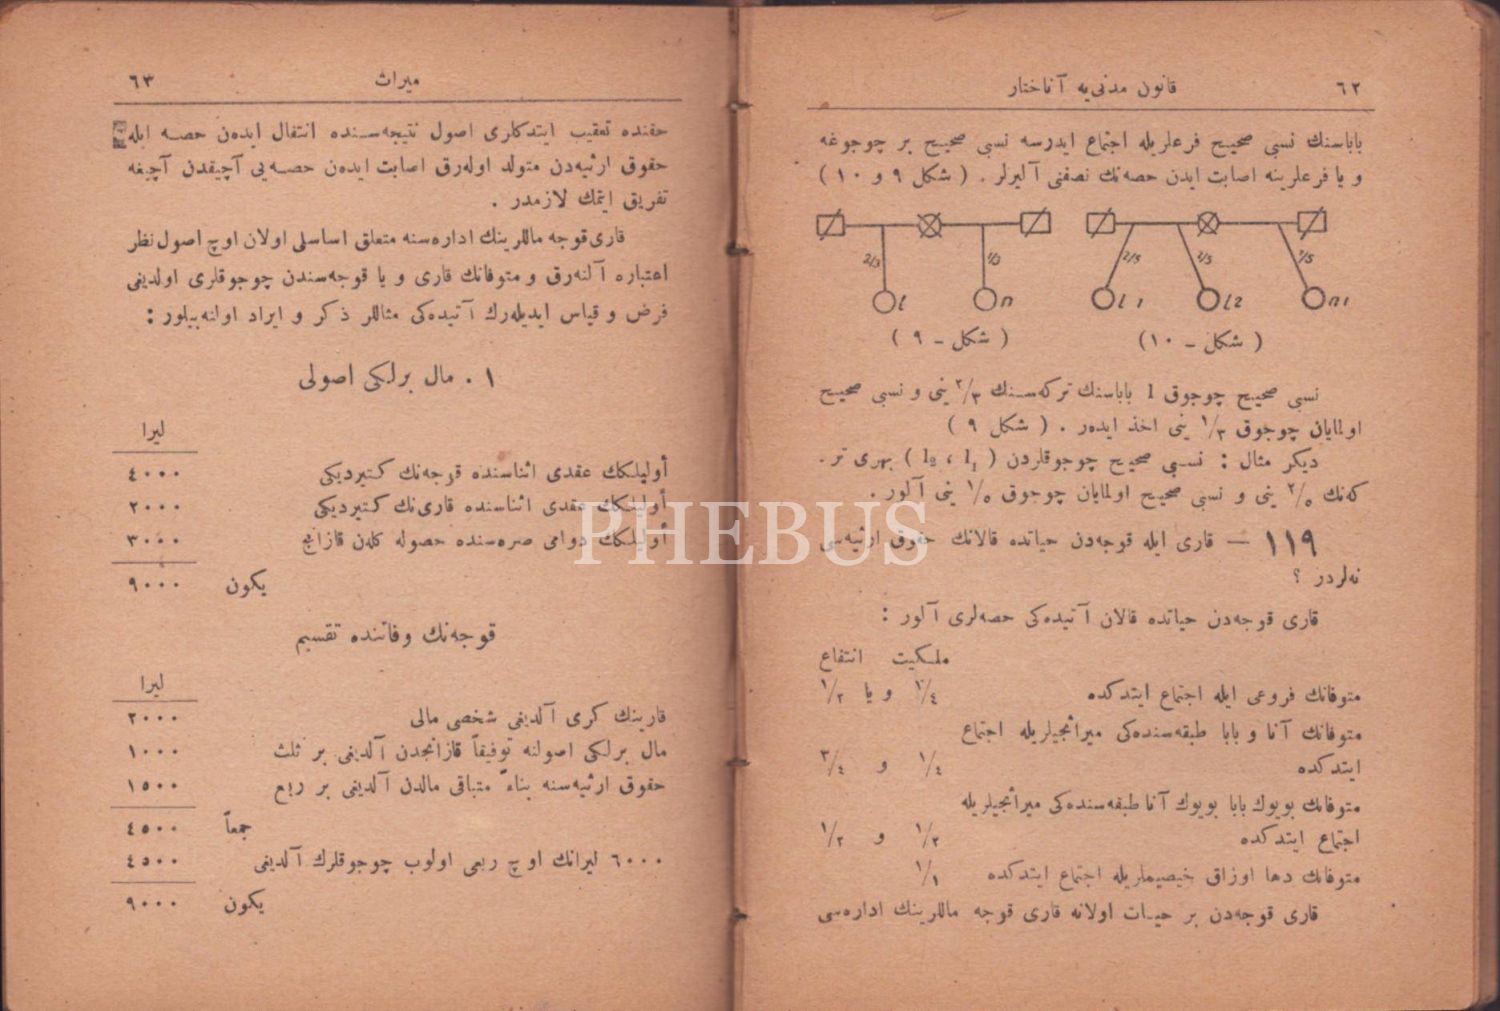 ٦٢ قانون مدنی‌یه آناختار
باباسنك نسبی صحیح فرعلریله اجتماع ایدرسه نسبی صحیح بر چوجوغه
و یا فرعلرینه اصابت ایدن حصه‌نك نصفنی آلیرلر . ( شکل ٩ و ١٠ )
2/3 1/3 2/5 2/5 1/5
l n l 1 l 2 n 1
( شکل ـ ٩ ) ( شکل ـ ١٠ )
نسبی صحیح چوجوق l باباسنك ترکه‌سنك ٢/٣ ینی و نسبی صحیح
اولمایان چوجوق ١/٣ ینی اخذ ایده‌ر . ( شکل ٩ )
دیکر مثال : نسبی صحیح چوجوقلردن ( l1 ، l2 ) بهری تر .
که‌نك ٢/٥ ینی و نسبی صحیح اولمایان چوجوق ١/٥ ینی آلور .
١١٩ — قاری ایله قوجه‌دن حیاتده قالانك حقوق ارثیه‌سی
نه‌لردر ؟
قاری قوجه‌دن حیاتده قالان آتیده‌کی حصه‌لری آلور :
ملکیت انتفاع
متوفانك فروعی ایله اجتماع ایتدکده ١/٤ و یا ١/٢
متوفانك آنا و بابا طبقه‌سنده‌کی میراثجیلریله اجتماع
ایتدکده ١/٤ و ٣/٤
متوفانك بویوك بابا بویوك آنا طبقه‌سنده‌کی میراثجیلریله
اجتماع ایتدکده ١/٢ و ١/٢
متوفانك دها اوزاق خیصیملریله اجتماع ایتدکده ١/١
قاری قوجه‌دن بر حیات اولانه قاری قوجه ماللرینك اداره‌سی
میراث ٦٣
حقنده تعقیب ایتدکلری اصول نتیجه‌سنده انتقال ایده‌ن حصه ایله
حقوق ارثیه‌دن متولد اوله‌رق اصابت ایده‌ن حصه‌یی آچیقدن آچیغه
تفریق ایتمك لازمدر .
قاری قوجه ماللرینك اداره‌سنه متعلق اساسلی اولان اوچ اصول نظر
اعتباره آلنه‌رق و متوفانك قاری و یا قوجه‌سندن چوجوقلری اولدیغی
فرض و قیاس ایدیله‌رك آتیده‌کی مثاللر ذکر و ایراد اولنه‌بیلور :
١ . مال برلکی اصولی
لیرا
أولیلکك عقدی اثناسنده قوجه‌نك کتیردیکی ٤٠٠٠
أولیلکك عقدی اثناسنده قاری‌نك کتیردیکی ٢٠٠٠
أولیلکك دوامی صره‌سنده حصوله کلن قازانج ٣٠٠٠
یکون ٩٠٠٠
قوجه‌نك وفاتنده تقسیم
لیرا
قارینك کری آلدیغی شخصی مالی ٢٠٠٠
مال برلکی اصولنه توفیقاً قازانجدن آلدیغی بر ثلث ١٠٠٠
حقوق ارثیه‌سنه بناءً متباقی مالدن آلدیغی بر ربع ١٥٠٠
جمعاً ٤٥٠٠
٦٠٠٠ لیرانك اوچ ربعی اولوب چوجوقلرك آلدیغی ٤٥٠٠
یکون ٩٠٠٠
PHEBUS